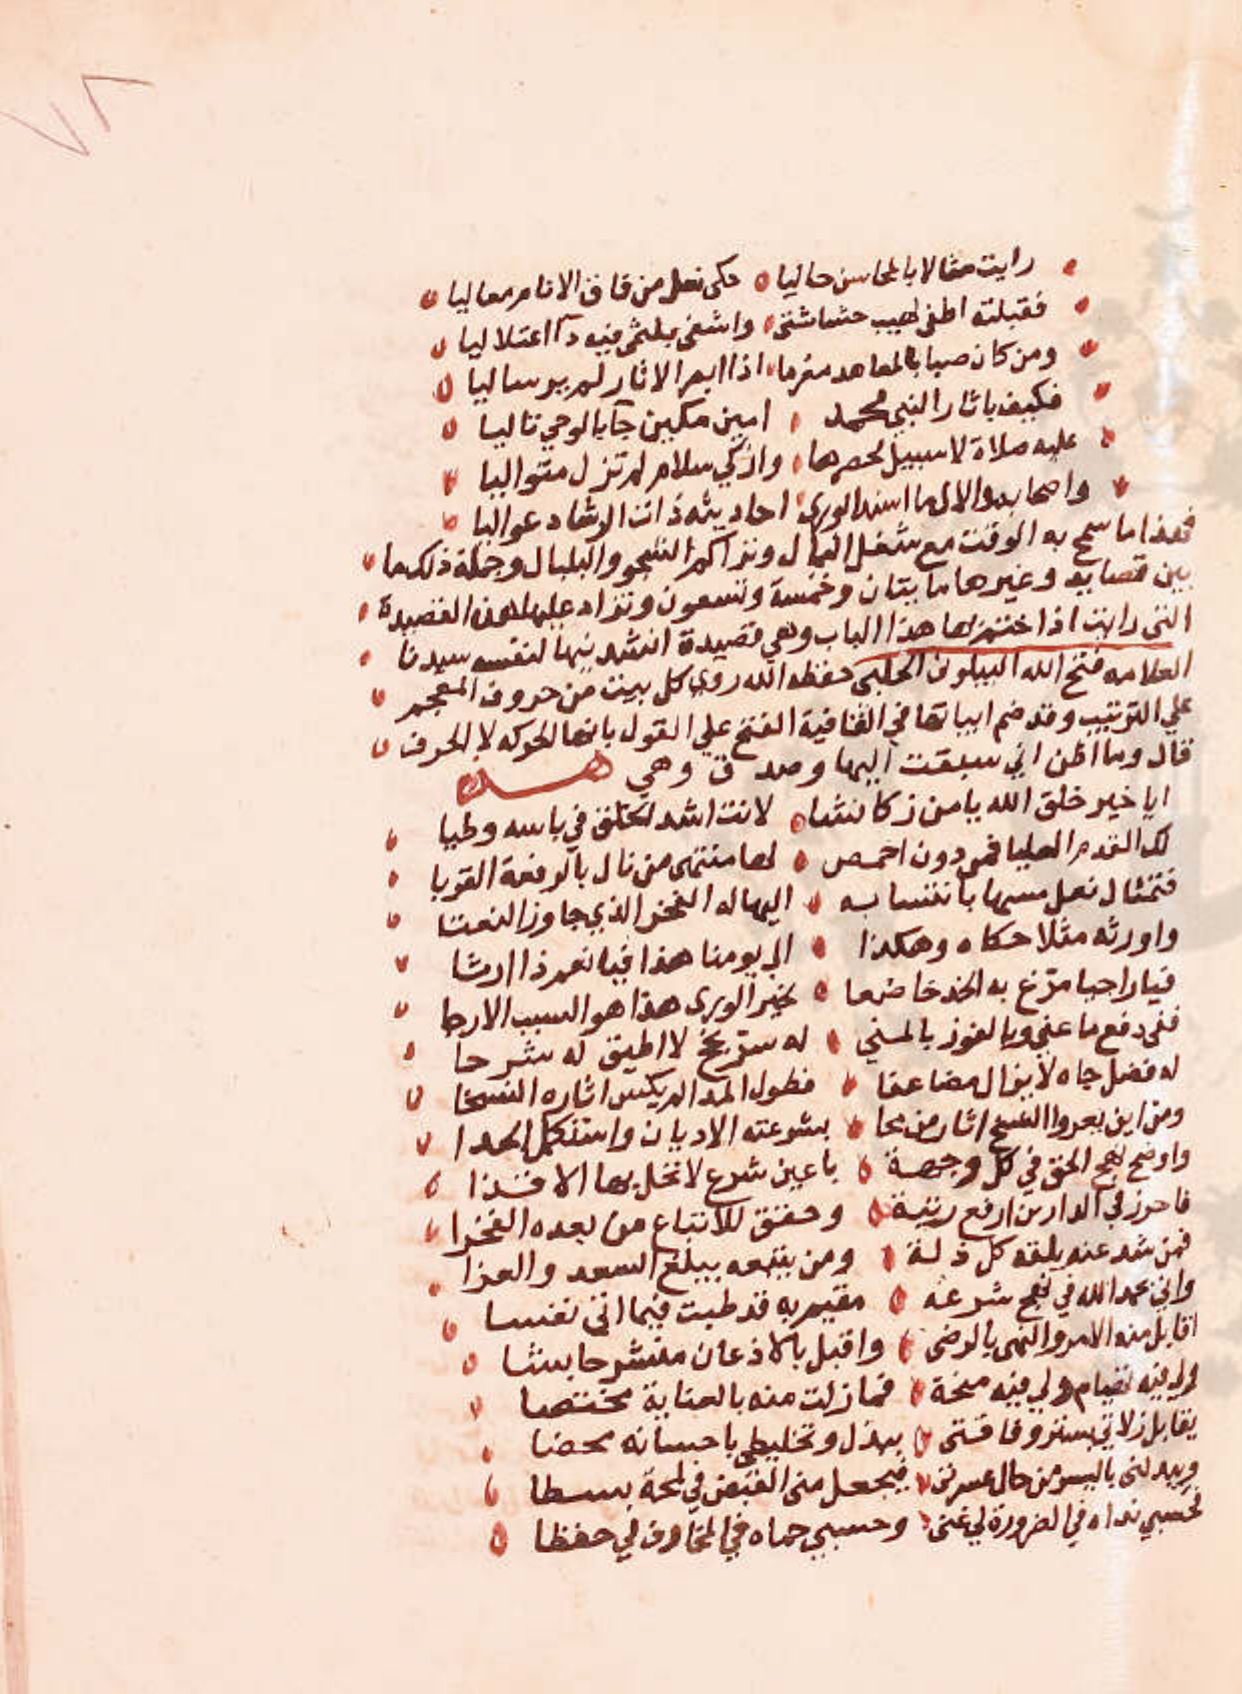 ٧٨
رايت مثالا بالمحاسن حاليا حكى نعل من فاق الانام معاليا
فقبلته اطفى لهيب حشاشتى واشفى بلثمى فيه دآ اعتلاليا
ومن كان صبا بالمعاهد مغرما اذا ابصر الاثار لم ير ساليا
فكيف باثار النبي محمد امين مكين جآ بالوحي تاليا
عليه صلاة لا سبيل لحصرها وازكي سلام لم تزل متواليا
واصحابه والال ما اسند الورى احاديثه ذات الرشاد عواليا
فهذا ما سمح به الوقت مع شغل البال وتراكم الشجو والبلبال وجملة ذلك ما
بين قصايد وغيرها مايتان وخمسة وتسعون وتزاد عليها هذه القصيدة
التى رايت اذا ختم بها هذا الباب وهي قصيدة انشدنيها لنفسه سيدنا
العلامه فتح الله البيلونى الحلبى حفظه الله روي كل بيت من حروف المعجم
علي الترتيب وقد ضم ابياتها في القافية الفتح علي القول بانها الحركه لا الحرف
قال وما اظن اني سبقت اليها وصدق وهي هذه
ايا خير خلق الله يا من زكا نشا لانت اشد الخلق في باسه وطيا
لك القدم العليا فمن دون اخمص لها منتهى من نال بالرفعة القربا
فتمثال نعل مسها بانتسابه اليها له الفخر الذي جاوز النعتا
واورثه مثلا حكاه وهكذا الي يومنا هذا فيا نعم ذا ارثا
فيا راجيا مرغ به الخد خاضعا لخير الورى هذا هو السبب الارجا
ففى دفع ما عنى ويا لفوز بالمنى له سر بخ لا اطيق له شرحا
له فضل جاه لا يزال مضاعفا فطول المدا لم يكس اثاره النسخا
ومن اين يعروا النسخ اثار من محا بشرعته الاديان واستكمل الحدا
واوضح نهج الحق في كل وجهة باعين شرع لا تخل بها الاقذا
فاحرز في الدارين ارفع رتبة وحقق للاتباع من بعده الفخرا
فمن شد عنه يلقه كل ذلة ومن يتبعه يبلغ السعد والعزا
وانى بحمد الله في نهج شرعه مقيم به قد طبت فيما اتى نفسا
اقابل منه الامر والنهى بالرضى واقبل بالاذعان منشرحا بشا
ولى فيه ولي فيه منحة فما زلت منه بالعناية مختصا
يقابل زلاتي بستر وفاقتى ببذل وتخليطى باحسانه محضا
ويبدلنى باليسر من حال عسرتى فيجعل منى القبض في لمحة بسطا
فحسبي نداه في الضرورة لي غنى وحسبي حماه في المخاوف لي حفظا